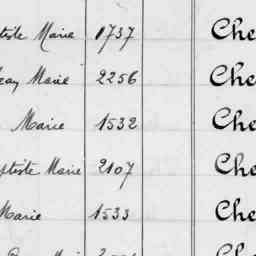 tiste Marie 1737 Che
Jean Marie 2256 Che
Marie 1532 Che
ptiste Marie 2107 Che
Marie 1533 Che